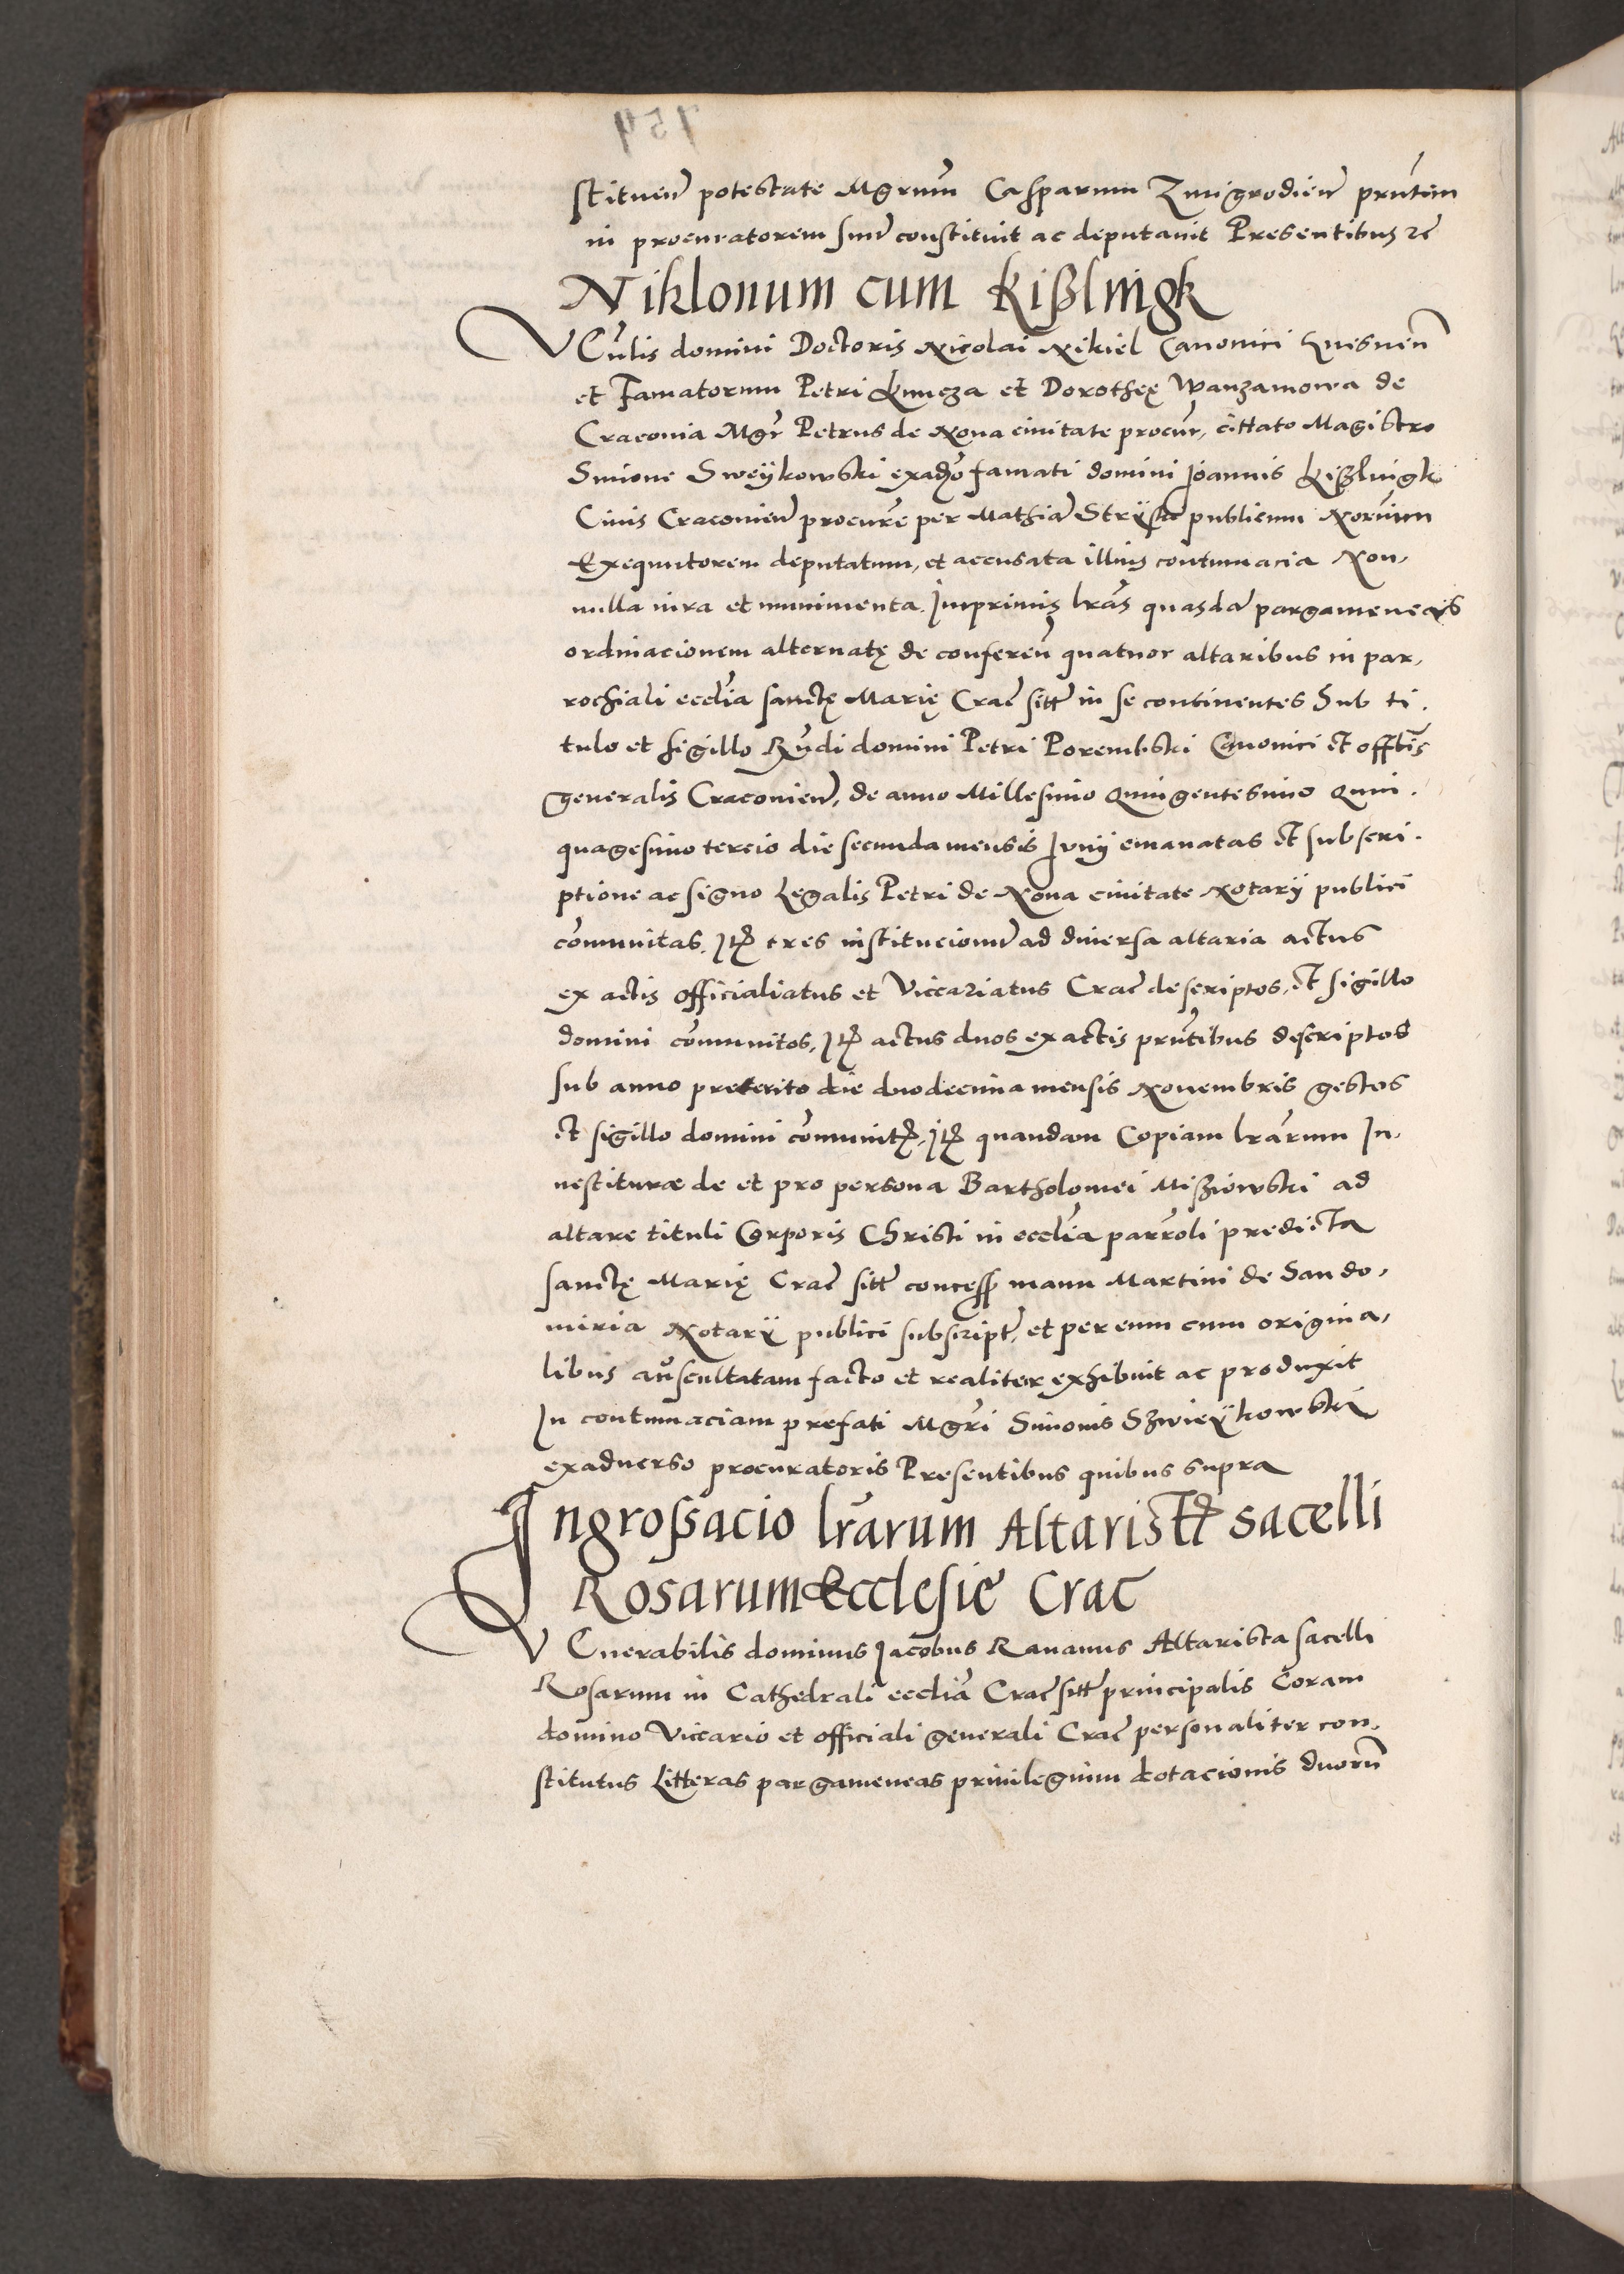 stituen̄ potestate Mgrum̄ Casparum Zmigrodien̄ prn̄tem
in procuratorem suū constituit ac deputauit Presentibus zc̄
Niklonum cum Kißlingk
VEn̄lis domini Doctoris Nicolai Nikiel Canonici Gnesnen̄
et Famatorum Petri Kuncza et Dorotheę Wanzamowa de
Cracouia Mgr̄ Petrus de Noua ciuitate procur̄, cittato Magistro
Simone Sweÿkowski exadūo famati domini Joannis Kißlingk
Ciuis Cracouien̄ procurr̄e per Mathiā publicum Noruim
Exequutorem deputatum, et accusata illius contumacia Non,
nulla iura et munimenta. Imprimis lrās quasdā pargameneas
ordinacionem alternatę de conferen̄ quatuor altaribus in par,
rochiali ecclīa sanctę Marię Crac̄ sitt̄ in se continentes Sub ti.
tulo et sigillo Rn̄di domini Petri Porembski Canonici et offīlis
generalis Cracouien̄, de anno Millesimo Quingentesimo Quin.
quagesimo tercio die secunda mensis Junij emanatas et subscri.
ptione ac signo Legalis Petri de Noua ciuitate Notarij publici
com̄unitas. Itꝫ tres institucionū ad diuersa altaria actus
ex actis officialiatus et Viccariatus Crac̄ descriptos, et sigillo
domini com̄unitos, Itꝫ actus duos ex actis prn̄tibus descriptos
sub anno preterito die duodecima mensis Nouembris gestos
et sigillo domini com̄unitꝫ, Itꝫ quandam Copiam lrārum In,
uestiturae de et pro persona Bartholomei Mißiowski ad
altare tituli Corporis Christi in ecclīa parr̄oli predicta
sanctę Marię Crac̄ sitt̄ concess̄ manu Martini de Sando,
miria Notarÿ publici subscript̄, et per eum cum origina,
libus auscultatam facto et realiter exhibuit ac produxit
In contumaciam prefati Mgr̄i Simonis Szwieÿkowski
exaduerso procuratoris Presentibus quibus supra
Ingroßacio lrārum Altaristꝫ sacelli
Rosarum Ecclesię Crac̄
VEnerabilis dominus Jacobus Rauanus Altarista sacelli
Rosarum in Cathedrali ecclīa Crac̄ sitt̄ principalis Coram
domino Viccario et officiali generali Crac̄ personaliter con,
stitutus Litteras pargameneas priuilegium dotacionis duorū